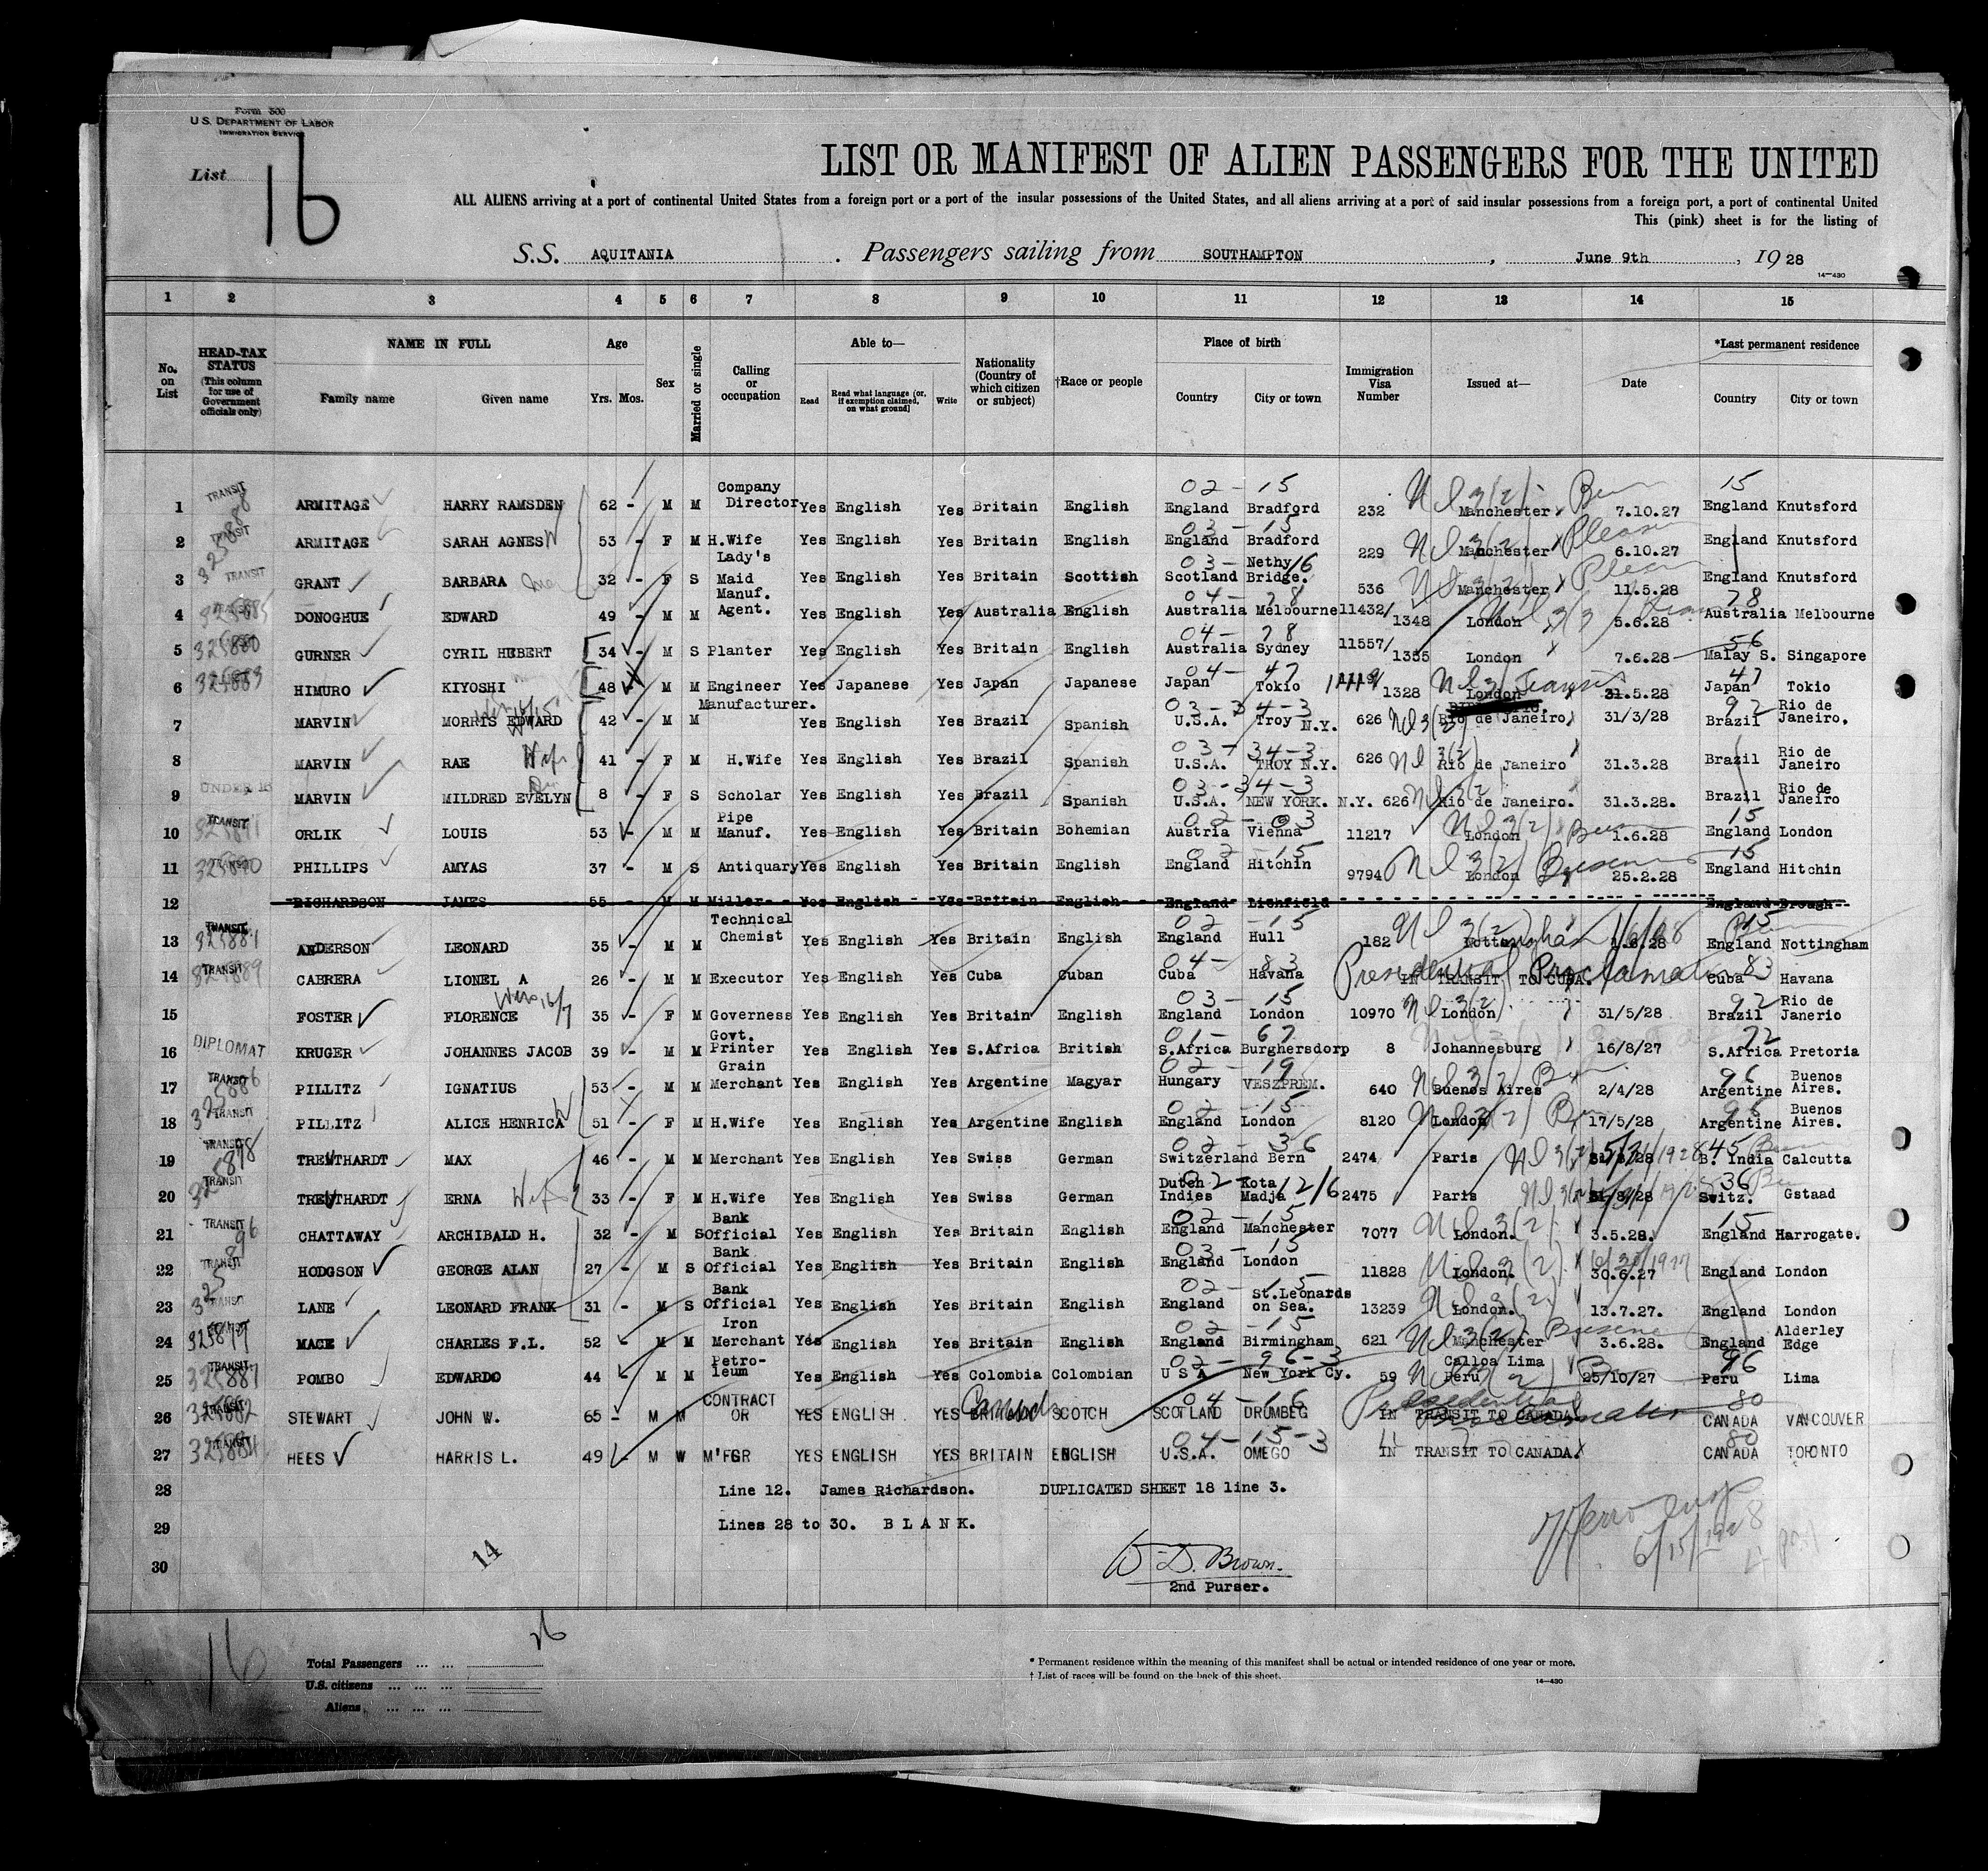 Form 500
U.S. DEPARTMENT OF LABOR
IMMIGRATION SERVICE
List 16
LIST OR MANIFEST OF ALIEN PASSENGERS FOR THE UNITED
ALL ALIENS arriving at a port of continental United States from a foreign port or a port of the insular possessions of the United States, and all aliens arriving at a port of said insular possessions from a foreign port, a port of continental United
This (pink) sheet is for the listing of
S.S. AQUITANIA. Passengers sailing from SOUTHAMPTON, June 9th, 1928
14—430
1 2 3 4 5 6 7 8 9 10 11 12 13 14 15
No. on List
HEAD-TAX STATUS (This column for use of Government officials only)
NAME IN FULL
Family name Given name
Age
Yrs. Mos.
Sex
Married or single
Calling or occupation
Able to—
Read Read what language (or, if exemption claimed, on what ground) Write
Nationality (Country of which citizen or subject)
†Race or people
Place of birth
Country City or town
Immigration Visa Number
Issued at—
Date
*Last permanent residence
Country City or town
1 TRANSIT ARMITAGE HARRY RAMSDEN 62 - M M Company Director Yes English Yes Britain English England Bradford 02-15 232 Manchester 7.10.27 15 England Knutsford
2 TRANSIT ARMITAGE SARAH AGNES 53 - F M H.Wife Yes English Yes Britain English England Bradford 03-15 229 Manchester 6.10.27 England Knutsford
3 TRANSIT GRANT BARBARA 32 - F S Lady's Maid Yes English Yes Britain Scottish Scotland Nethy Bridge. 03-16 536 Manchester 11.5.28 England Knutsford
4 325885 DONOGHUE EDWARD 49 - M M Manuf. Agent. Yes English Yes Australia English Australia Melbourne 04-78 11432/1348 London 5.6.28 78 Australia Melbourne
5 325880 GURNER CYRIL HUBERT 34 - M S Planter Yes English Yes Britain English Australia Sydney 04-78 11557/1355 London 7.6.28 56 Malay S. Singapore
6 325883 HIMURO KIYOSHI 48 M M Engineer Yes Japanese Yes Japan Japanese Japan Tokio 04-47 1328 London 31.5.28 47 Japan Tokio
7 MARVIN MORRIS EDWARD 42 - M M Manufacturer. Yes English Yes Brazil Spanish U.S.A. Troy N.Y. 03-34-3 626 Rio de Janeiro 31/3/28 92 Brazil Rio de Janeiro.
8 MARVIN RAE Wife 41 - F M H.Wife Yes English Yes Brazil Spanish U.S.A. TROY N.Y. 03-34-3 626 Rio de Janeiro 31.3.28 Brazil Rio de Janeiro
9 UNDER 16 MARVIN MILDRED EVELYN 8 - F S Scholar Yes English Yes Brazil Spanish U.S.A. NEW YORK. N.Y. 03-34-3 626 Rio de Janeiro. 31.3.28. Brazil Rio de Janeiro
10 TRANSIT ORLIK LOUIS 53 - M M Pipe Manuf. Yes English Yes Britain Bohemian Austria Vienna 02-03 11217 London 1.6.28 15 England London
11 325890 PHILLIPS AMYAS 37 - M S Antiquary Yes English Yes Britain English England Hitchin 02-15 9794 London 25.2.28 15 England Hitchin
12 RICHARDSON JAMES 55 - M M Miller Yes English Yes Britain English England Lichfield England Brough
13 TRANSIT 325881 ANDERSON LEONARD 35 - M M Technical Chemist Yes English Yes Britain English England Hull 02-15 182 Nottingham 1.6.28 15 England Nottingham
14 TRANSIT 325889 CABRERA LIONEL A 26 - M M Executor Yes English Yes Cuba Cuban Cuba Havana 04-83 IN TRANSIT TO CUBA. Presidential Proclamation Cuba 83 Havana
15 FOSTER FLORENCE 35 - F M Governess Yes English Yes Britain English England London 03-15 10970 London 31/5/28 92 Brazil Rio de Janerio
16 DIPLOMAT KRUGER JOHANNES JACOB 39 - M M Govt. Printer Yes English Yes S.Africa British S.Africa Burghersdorp 01-67 8 Johannesburg 16/8/27 72 S.Africa Pretoria
17 TRANSIT PILLITZ IGNATIUS 53 - M M Grain Merchant Yes English Yes Argentine Magyar Hungary VESZPREM. 02-19 640 Buenos Aires 2/4/28 96 Argentine Buenos Aires.
18 TRANSIT PILLITZ ALICE HENRICA 51 - F M H.Wife Yes English Yes Argentine English England London 02-15 8120 London 17/5/28 Argentine Buenos Aires.
19 TRANSIT TREUTHARDT MAX 46 - M M Merchant Yes English Yes Swiss German Switzerland Bern 02-36 2474 Paris 45 B. India Calcutta
20 TRANSIT TREUTHARDT ERNA Wife 33 - F M H.Wife Yes English Yes Swiss German Dutch Indies Kota Madja 2475 Paris 36 Switz. Gstaad
21 TRANSIT CHATTAWAY ARCHIBALD H. 32 - M S Bank Official Yes English Yes Britain English England Manchester 02-15 7077 London. 3.5.28. 15 England Harrogate.
22 TRANSIT HODGSON GEORGE ALAN 27 - M S Bank Official Yes English Yes Britain English England London 03-15 11828 London. 30.6.27 England London
23 TRANSIT LANE LEONARD FRANK 31 - M S Bank Official Yes English Yes Britain English England St.Leonards on Sea. 02-15 13239 London. 13.7.27. England London
24 325879 MACE CHARLES F.L. 52 - M M Iron Merchant Yes English Yes Britain English England Birmingham 02-15 621 Manchester 3.6.28. England Alderley Edge
25 TRANSIT 325887 POMBO EDWARDO 44 - M M Petroleum Yes English Yes Colombia Colombian U S A New York Cy. 02-96-3 59 Calloa Lima Peru 25/10/27 96 Peru Lima
26 TRANSIT 325882 STEWART JOHN W. 65 - M M CONTRACTOR YES ENGLISH YES BRITAIN Canada SCOTCH SCOTLAND DRUMBEG 04-16 IN TRANSIT TO CANADA Presidential 80 CANADA VANCOUVER
27 TRANSIT 325884 HEES HARRIS L. 49 - M W M'FGR YES ENGLISH YES BRITAIN ENGLISH U.S.A. OMEGO 04-15-3 IN TRANSIT TO CANADA. 80 CANADA TORONTO
28 Line 12. James Richardson. DUPLICATED SHEET 18 line 3.
29 Lines 28 to 30. B L A N K.
30
14
W D. Brown.
2nd Purser.
6/15/1928
16
26
Total Passengers ... ...
U.S. citizens ... ... ...
Aliens, ... ... ...
* Permanent residence within the meaning of this manifest shall be actual or intended residence of one year or more.
† List of races will be found on the back of this sheet.
14—430